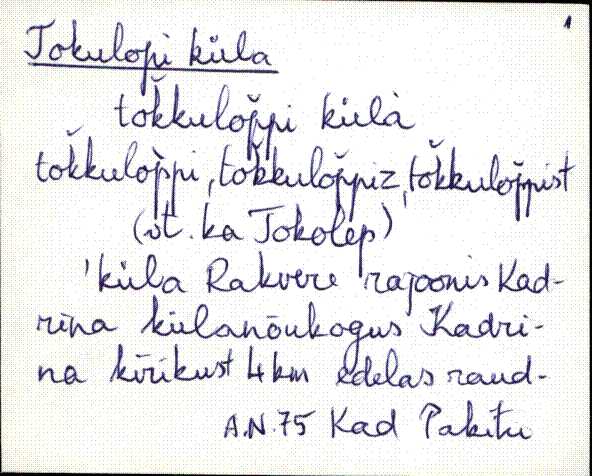 1
Tokulopi küla
tok̆kulop̆pi külà
tok̆kulop̆pi, tok̆kulop̆piz, tok̆kulop̆pist
(vt. ka Tokolep)
'küla Rakvere rajoonis Kad-
rina külanõukogus Kadri-
na kirikust 4 km edelas raud-
A.N. 75 Kad Pakitu